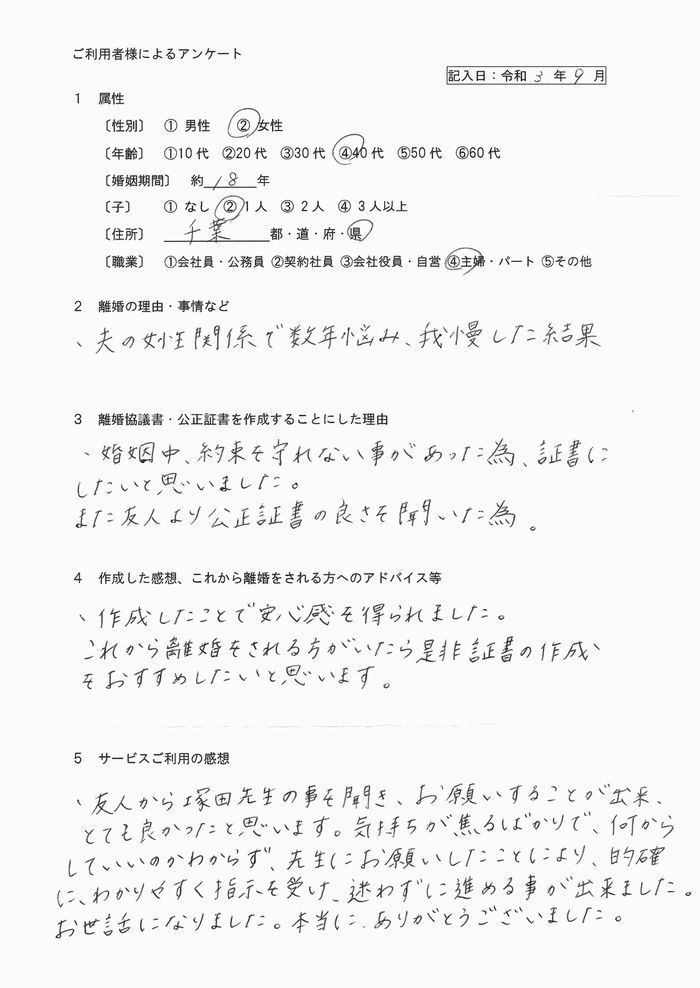 ご利用者様によるアンケート
記入日：令和 3 年 9 月
1 属性
〔性別〕 ① 男性 ② 女性
〔年齢〕 ①10代 ②20代 ③30代 ④40代 ⑤50代 ⑥60代
〔婚姻期間〕 約 18 年
〔子〕 ① なし ② 1人 ③ 2人 ④ 3人以上
〔住所〕 千葉 都・道・府・県
〔職業〕 ①会社員・公務員 ②契約社員 ③会社役員・自営 ④主婦・パート ⑤その他
2 離婚の理由・事情など
、夫の女性関係で数年悩み、我慢した結果
3 離婚協議書・公正証書を作成することにした理由
、婚姻中、約束を守れない事があった為、証書に
したいと思いました。
また友人より公正証書の良さを聞いた為。
4 作成した感想、これから離婚をされる方へのアドバイス等
、作成したことで安心感を得られました。
これから離婚をされる方がいたら是非証書の作成、
をおすすめしたいと思います。
5 サービスご利用の感想
、友人から塚田先生の事を聞き、お願いすることが出来、
とても良かったと思います。気持ちが焦るばかりで、何から
していいのかわからず、先生にお願いしたことにより、的確
に、わかりやすく指示を受け、迷わずに進める事が出来ました。
お世話になりました。本当に、ありがとうございました。